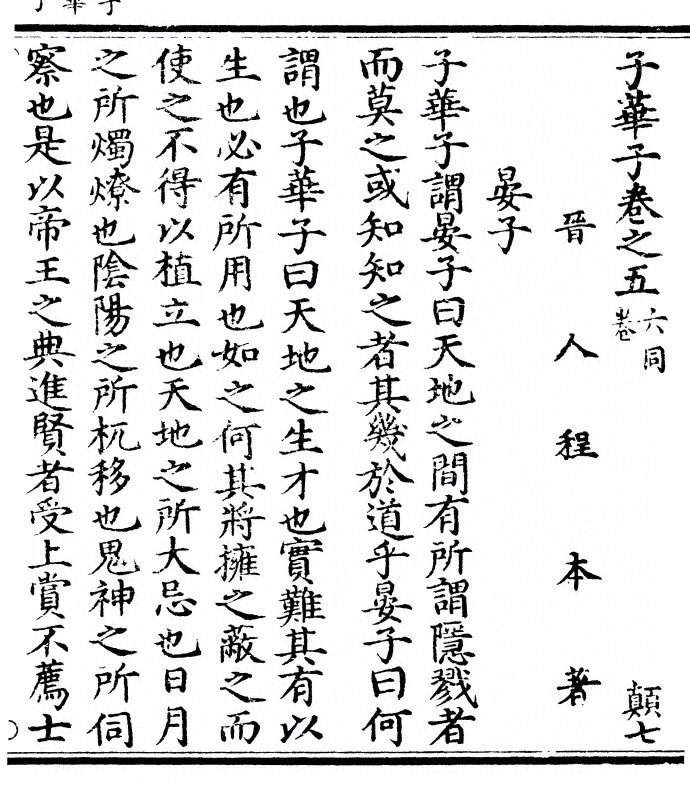 子華子卷之五 六同卷 顛七
晉人程本著
晏子
子華子謂晏子曰天地之間有所謂隱戮者
而莫之或知知之者其幾於道乎晏子曰何
謂也子華子曰天地之生才也實難其有以
生也必有所用也如之何其將擁之蔽之而
使之不得以植立也天地之所大忌也日月
之所燭燎也陰陽之所杌移也鬼神之所伺
察也是以帝王之典進賢者受上賞不薦士